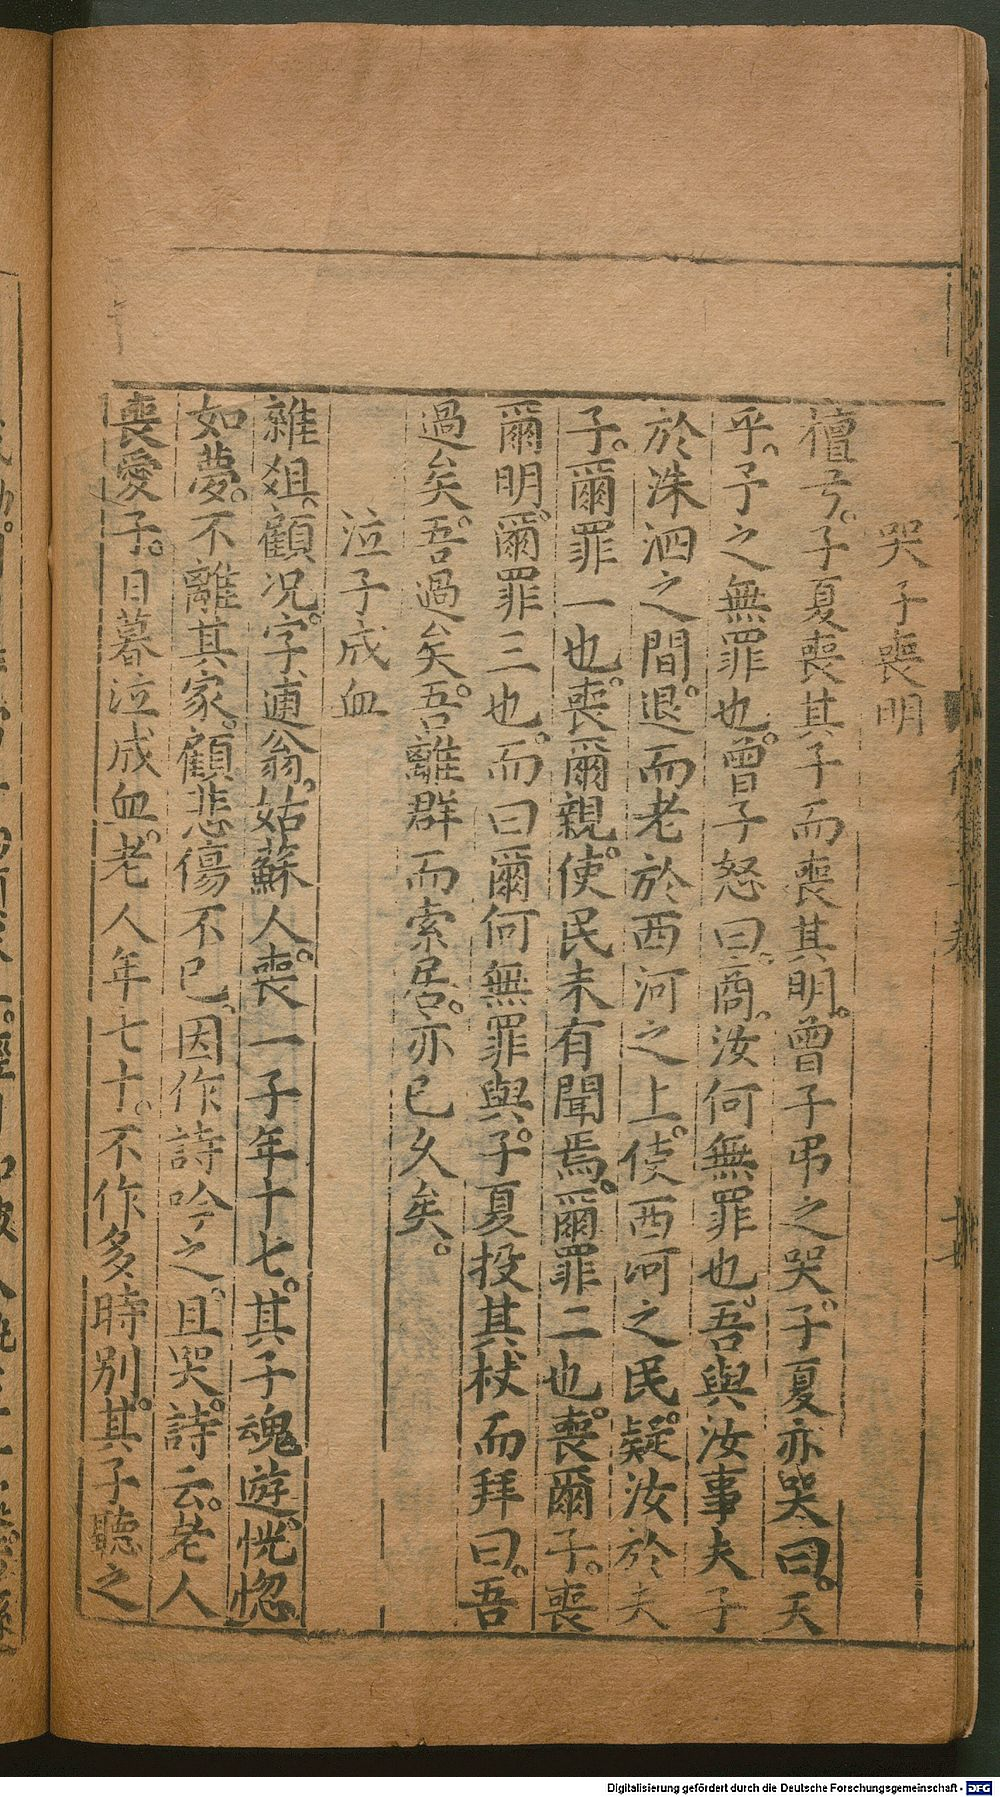 哭子喪明
檀弓。子夏喪其子而喪其明。曾子弔之哭。子夏亦哭曰。天
乎。予之無罪也。曾子怒曰。商。汝何無罪也。吾與汝事夫子
於洙泗之間。退而老於西河之上。使西河之民。疑汝於夫
子。爾罪一也。喪爾親。使民未有聞焉。爾罪二也。喪爾子。喪
爾明。爾罪三也。而曰爾何無罪與。子夏投其杖而拜曰。吾
過矣。吾過矣。吾離群而索居。亦已久矣。
泣子成血
雜俎。顧况。字逋翁。姑蘇人。喪一子年十七。其子魂遊。恍惚
如夢。不離其家。顧悲傷不已。因作詩吟之。且哭。詩云。老人
喪愛子。日暮泣成血。老人年七十。不作多時别。其子聽之
Digitalisierung gefördert durch die Deutsche Forschungsgemeinschaft - DFG